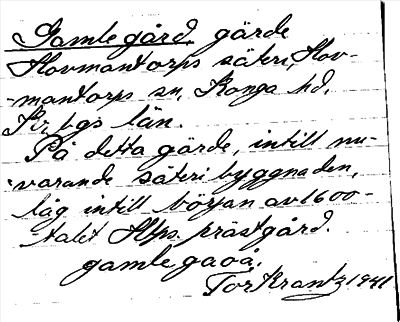 Gamlegård, gärde
Hovmantorps säteri, Hov-
mantorps sn, Konga hd,
Kr,bgs län.
På detta gärde, intill nu-
varande säteribyggnaden,
låg intill början av 1600-
talet Htps. prästgård.
gamlegaoå.
Tor Krantz 1941